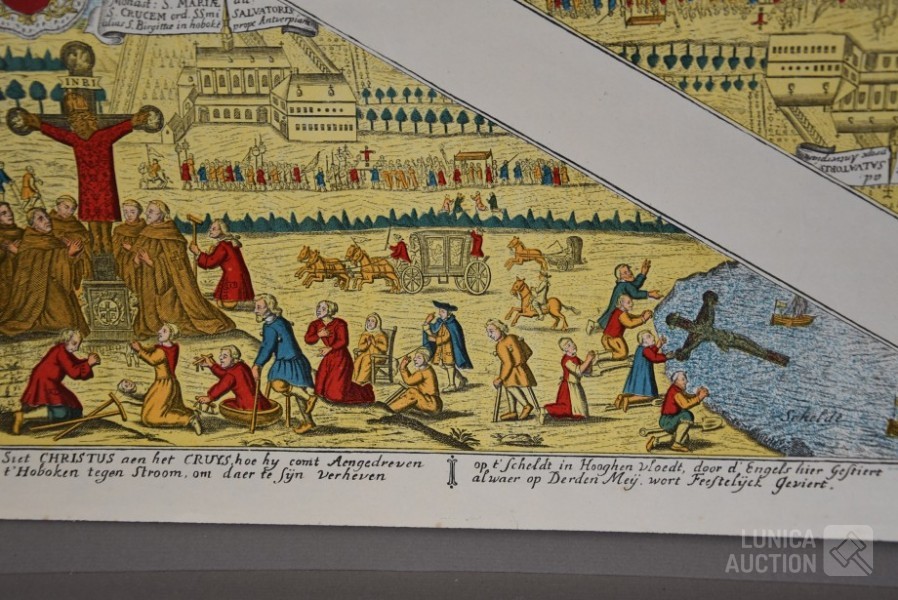 Monast: S. MARIÆ
S. CRUCEM ord. SSmi SALVATORIS
dius S. Birgittæ in hoboke prope Antverpiam
INRI
SALVATORIS
prope Antverpiam
Scheldt
Siet CHRISTUS aen het CRUYS, hoe hy comt Aengedreven
t'Hoboken tegen Stroom, om daer te sÿn verheven
op t'Scheldt in Hooghen vloedt, door d'Engels hier Gestiert
alwaer op Derden Meÿ. wort Feestelÿck Geviert.
LUNICA
AUCTION